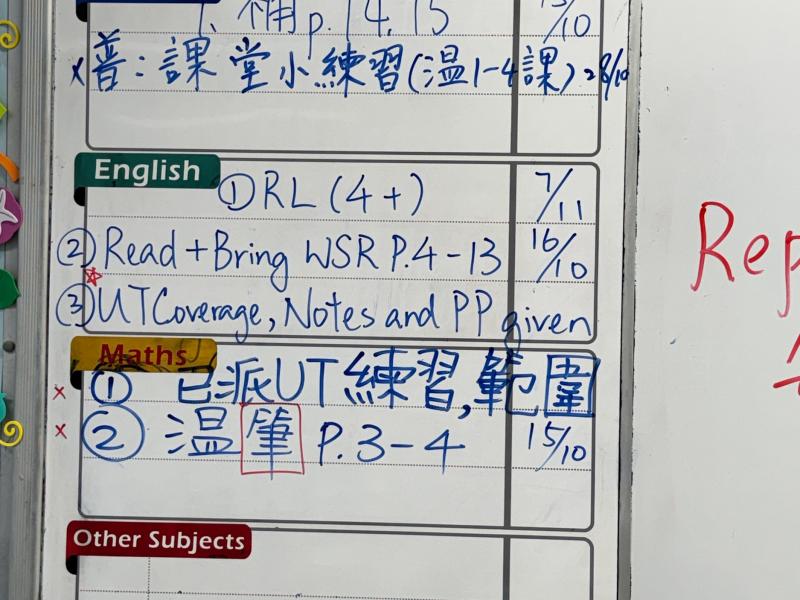 補 p.14, 15 13/10
x 普：課堂小練習(溫1-4課) 28/10
English
① DRL (4+) 7/11
② Read + Bring WSR P.4-13 16/10
☆
③ UT Coverage, Notes and PP given
Maths
x ① 已派UT練習,範圍
x ② 溫筆 P.3-4 15/10
Other Subjects
Rep